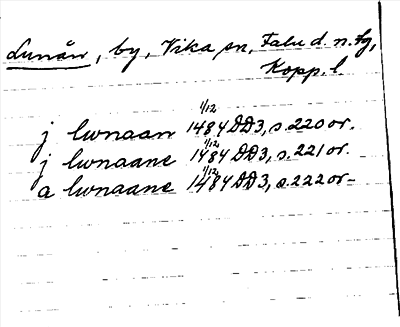 Lunån, by, Vika sn, Falu d. n. fg,
Kopp. l.
j lwnaan 1/12 1484 DD3, s. 220 or.
j lwnaane 1/12 1484 DD3, s. 221 or.
a lwnaane 1/12 1484 DD3, s. 222 or-